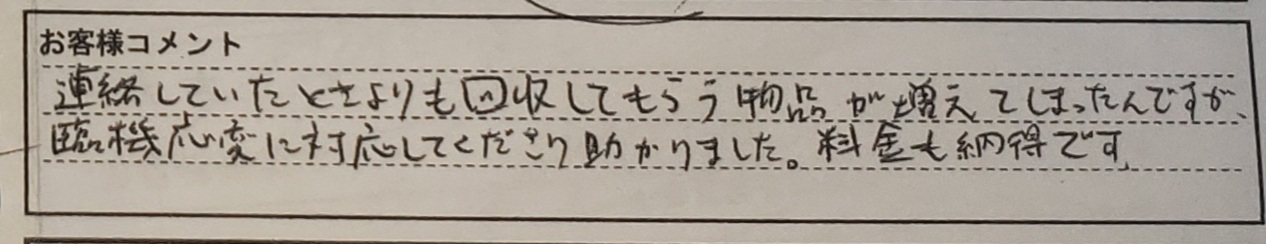 お客様コメント
連絡していたときよりも回収してもらう物品が増えてしまったんですが、
臨機応変に対応してくださり助かりました。料金も納得です。